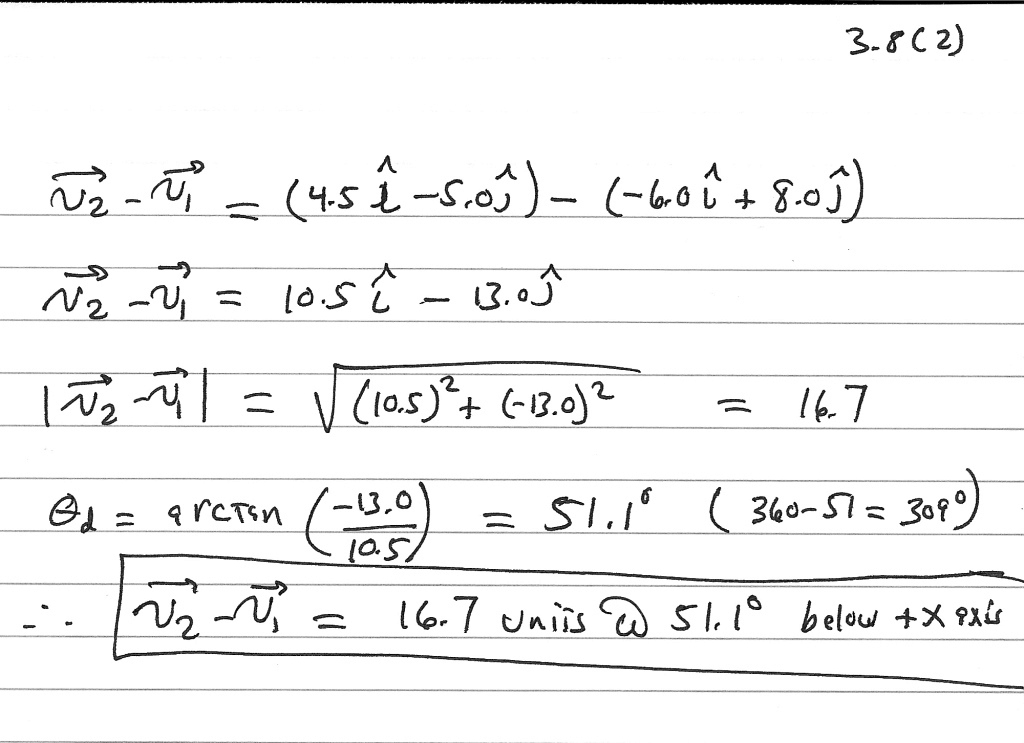 3.8(2)
v⃗₂ - v⃗₁ = (4.5 î - 5.0 ĵ) - (-6.0 î + 8.0 ĵ)
v⃗₂ - v⃗₁ = 10.5 î - 13.0 ĵ
|v⃗₂ - v⃗₁| = √((10.5)² + (-13.0)²) = 16.7
θd = arctan (-13.0/10.5) = 51.1° (360-51 = 309°)
∴ v⃗₂ - v⃗₁ = 16.7 units @ 51.1° below +x axis